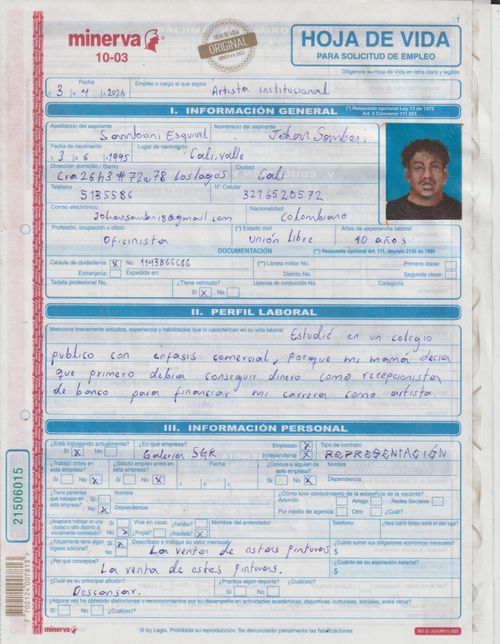 minerva
10-03
HOJA DE VIDA
ORIGINAL
MINERVA 1003
HOJA DE VIDA
PARA SOLICITUD DE EMPLEO
Diligencie su Hoja de Vida en letra clara y legible
1
Fecha
3 4 2026
Empleo o cargo al que aspira
Artista institucional
I. INFORMACIÓN GENERAL
(*) Respuesta opcional Ley 13 de 1972
Apellido(s) del aspirante
Samboni Esquivel
Nombre(s) del aspirante
Johan Samboni
Fecha de nacimiento
3 6 1995
Lugar de nacimiento
Cali, valle
Dirección domicilio / Barrio
Cra 26h3 #72w78 los lagos
Ciudad
Cali
Teléfono
5135586
N°. Celular
3216520572
Correo electrónico
Johansamboni8@mail.com
Nacionalidad
Colombiano
Profesión, ocupación u oficio
Oficinista
(*) Estado civil
Unión libre
Años de experiencia laboral
10 años
DOCUMENTACIÓN
(*) Respuesta opcional Art. 111, decreto 2150 de 1995
Cédula de ciudadanía: X No. 1143866666
(*) Libreta militar No.
Primera clase:
Extranjería: Expedida en:
Distrito No.
Segunda clase:
Tarjeta profesional No.
¿Tiene vehículo?
Si X No
Licencia de conducción No.
Categoría
II. PERFIL LABORAL
Mencione brevemente estudios, experiencia y habilidades que lo caractericen en su vida laboral
Estudié en un colegio
publico con énfasis comercial, porque mi mamá decia
que primero debia conseguir dinero como recepcionista
de banco para financiar mi carrera como artista
III. INFORMACIÓN PERSONAL
¿Está trabajando actualmente?
Si X No
¿En qué empresa?
Galeria SGR
Empleado X
Independiente X
Tipo de contrato
REPRESENTACIÓN
¿Trabajó antes en esta empresa?
Si No X
¿Solicitó empleo antes en esta empresa?
Si No X
Fecha
¿Conoce a alguien de esta empresa?
Si No X
Nombre
Dependencia
¿Tiene parientes que trabajan en esta empresa?
Si
No X
Nombre
Dependencia
¿Cómo tuvo conocimiento de la existencia de la vacante?
Anuncio Amigo Redes Sociales
Por medio de agencia Otro ¿Cuál?
No X
Vive en casa: ¿Familiar?
¿Propia? ¿Alquilada? X
Nombre del arrendador
Teléfono
¿Actualmente tiene algún ingreso adicional?
Si X
No
Descríbalo e indique su valor mensual
La venta de estas pinturas
$
¿Cuánto suman sus obligaciones económicas mensuales?
$
¿Por qué conceptos?
La venta de estas pinturas.
¿Cuál es su aspiración salarial?
$
¿Cuál es su principal afición?
Descansar.
¿Practica algún deporte?
Si No
¿Cuál(es)?
¿Alguna vez ha obtenido distinciones o reconocimientos por su desempeño en actividades académicas, deportivas, culturales, sociales, entre otros?
Si No ¿Cuál(es)?
minerva
© by Legis. Prohibida su reproducción. Se denunciarán penalmente las falsificaciones
21506015